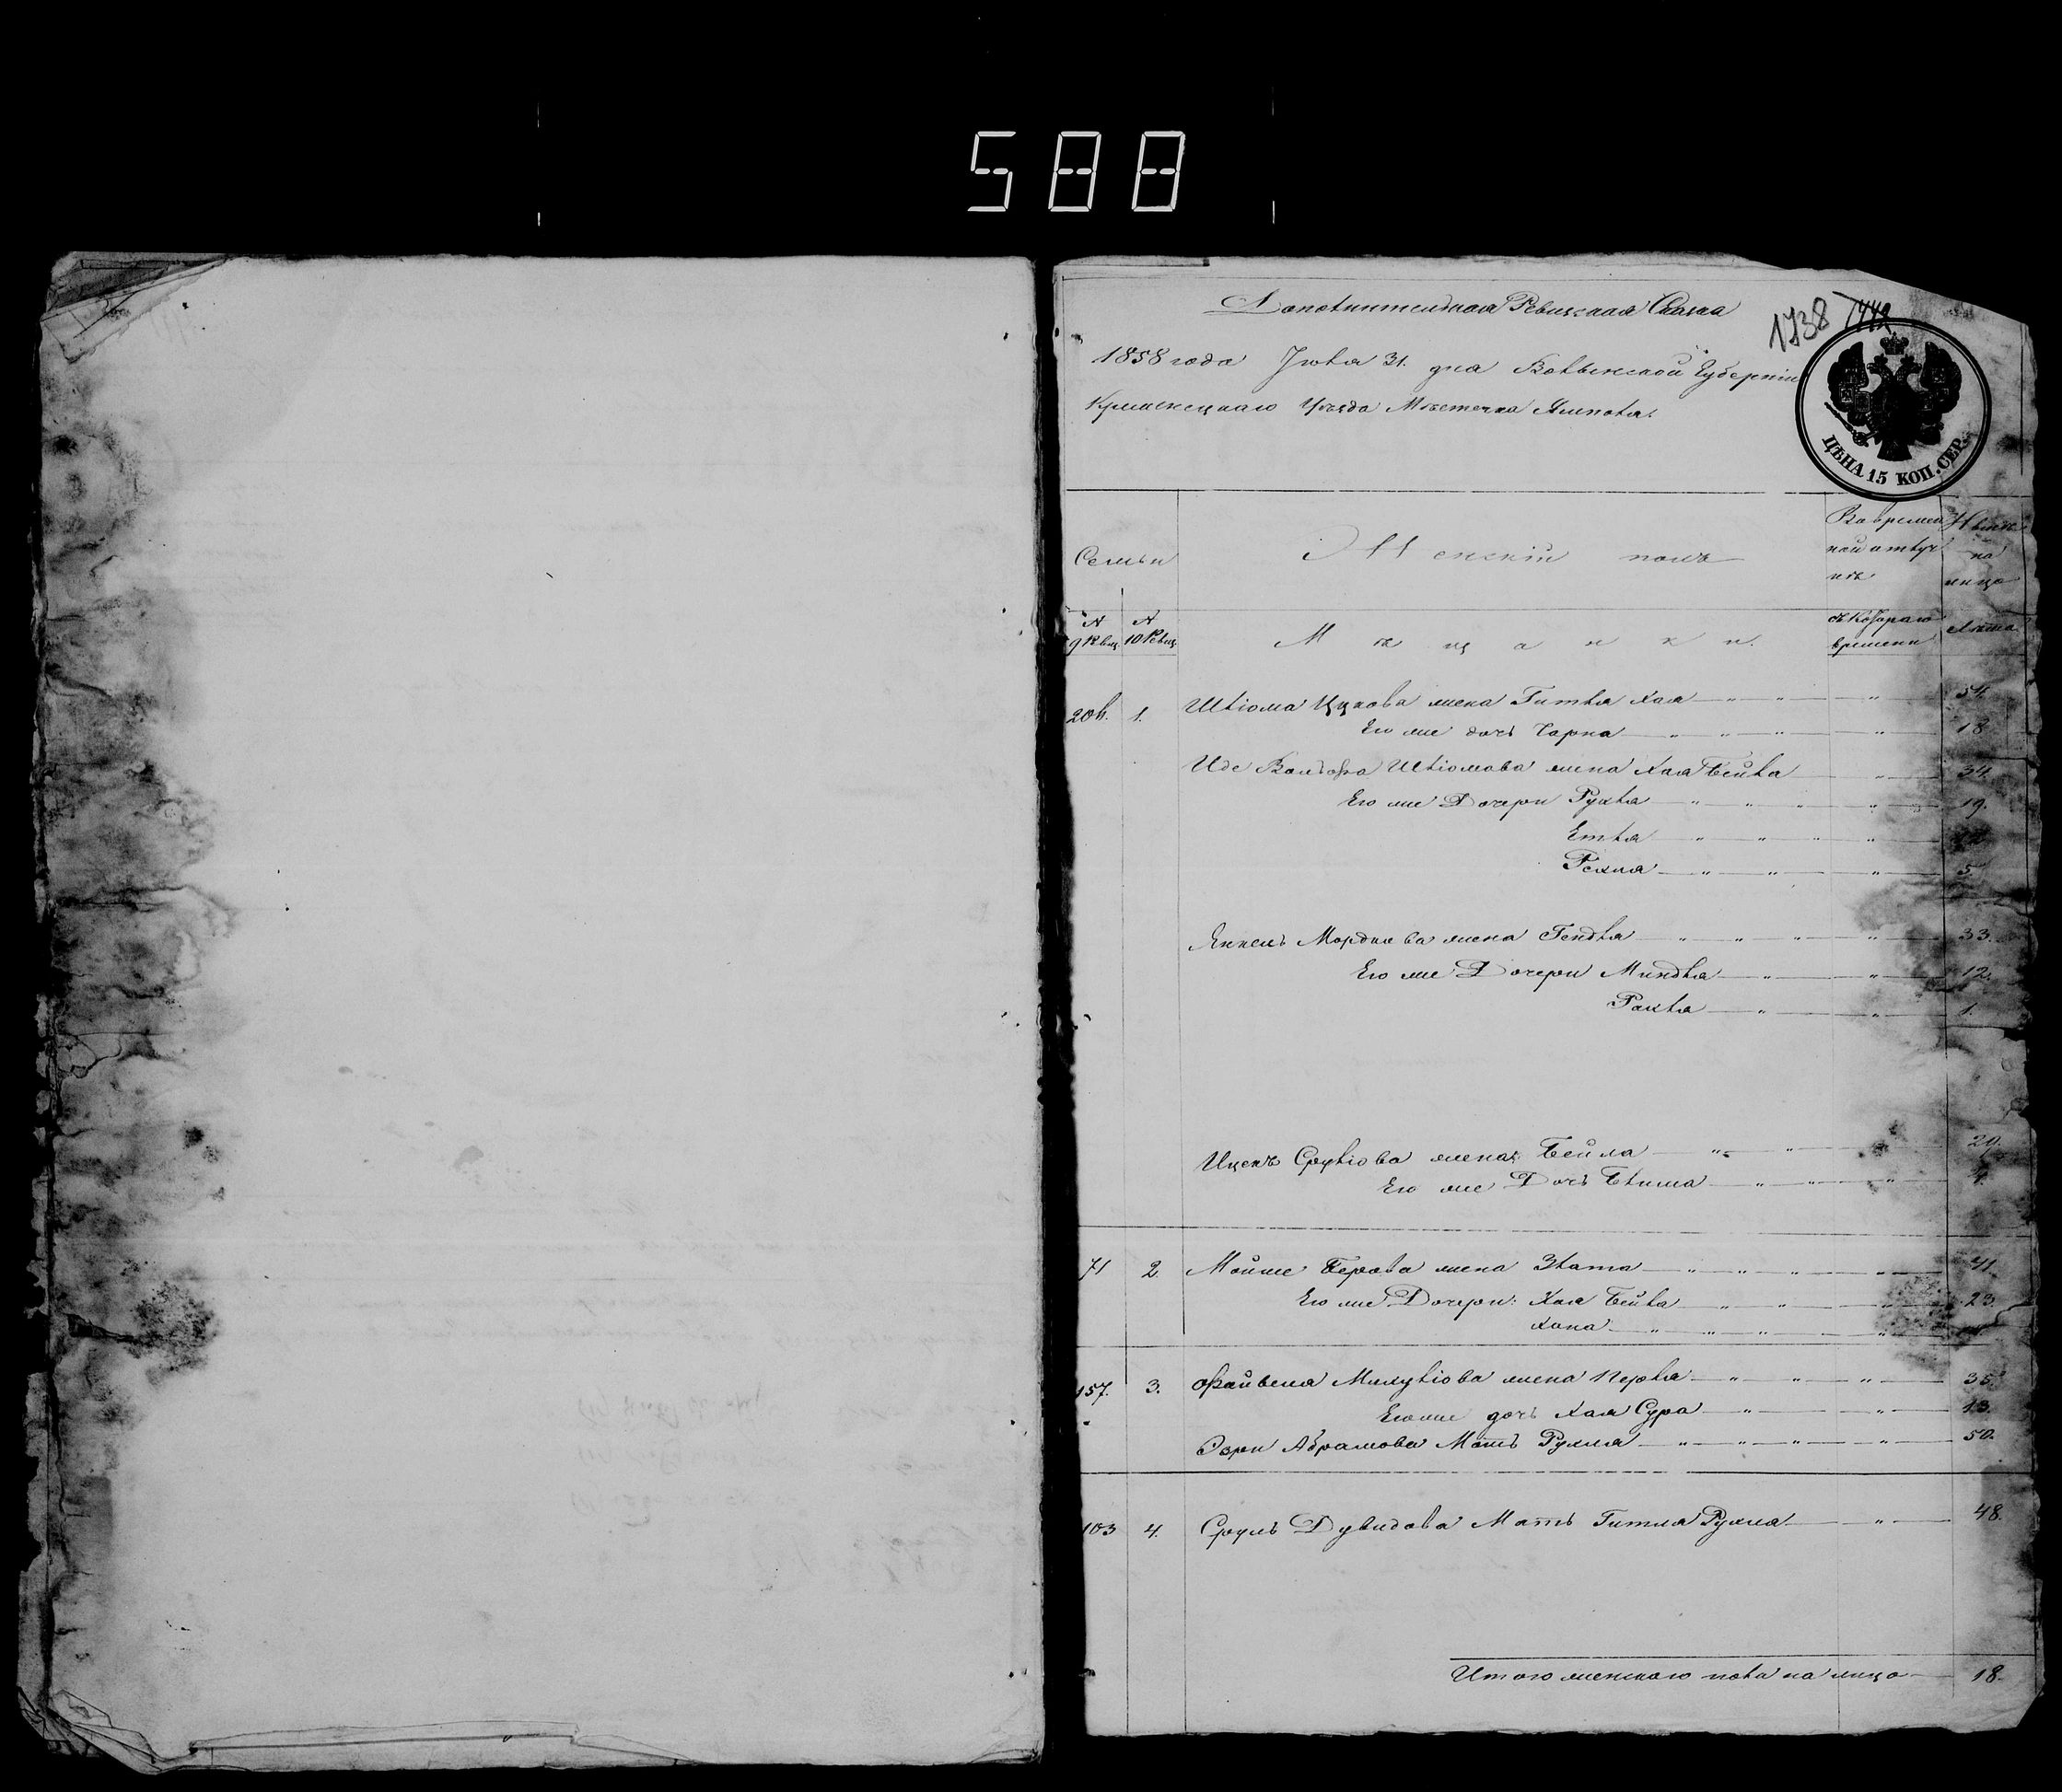 588
Дополнительная Ревизская Сказка
1738
1858 года Июля 31. дня Волынской Губерніи
Кременецкаго Уѣзда Мѣстечка Ямполя.
ЦѢНА 15 КОП. СЕР.
Семьи
Женскій полъ
Во времен
ной отлуч
кѣ
Нынѣ
на
лицо
№ 9 Ревиз.
№ 10 Ревиз.
Мѣщанки.
съ котораго
времени
Лѣта
1. Шліома Ицкова жена Гитля Хая 54.
Его же дочь Чарна 18
Иде Вольфа Шліомова жена Хая Бейла 34.
Его же Дочери Рухля 19.
Етля
Рехля 5
Янкель Мордкова жена Гендля 33.
Его же Дочери Миндля 12.
Рахля 1.
Ицекъ Сруліова жена: Бейла 29.
Его же Дочь Блима
71 2. Мойше Берова жена Злата 41.
Его же Дочери: Хая Бейла 23.
Хана
157. 3. Файвеля Михуліова жена Перля 35.
Его же дочь Хая Сура 13.
Абрамова Мать Рухля 50.
103 4. Сруль Дувидова Мать Гитля Рухля 48.
Итого женскаго пола на лицо 18.